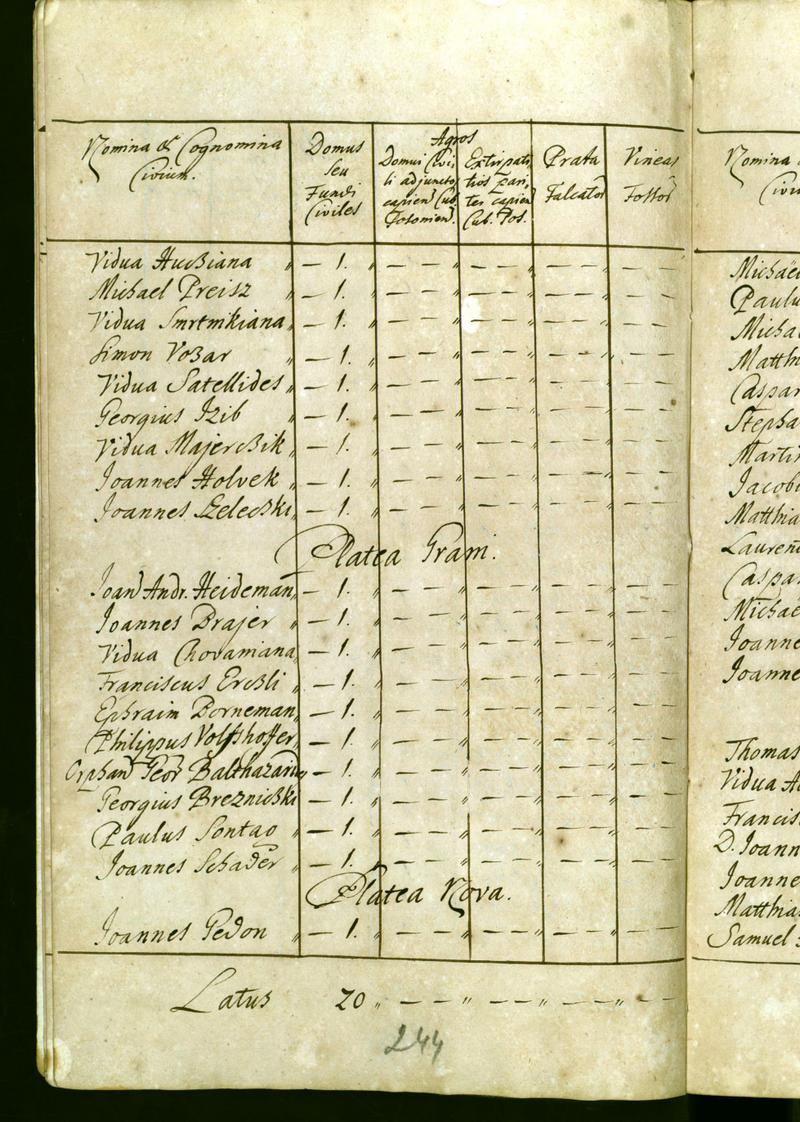 Nomina & Cognomina Civium.
Domus seu Fundi Civiles
Agros
Domui Civili adjunctos capien Cub. Posonien.
Extirpatitios pariter capien Cub. Pos.
Prata Falcator
Vineas Fossor
Nomina
Vidua Hucskiana " — 1. " — — " — — " — — " — —
Michael Preisz " — 1. " — — " — — " — — " — —
Vidua Smrtnikiana " — 1. " — — " — — " — — " — —
Simon Vozar " — 1. " — — " — — " — — " — —
Vidua Satellides " — 1. " — — " — — " — — " — —
Georgius Izib " — 1. " — — " — — " — — " — —
Vidua Majerszik " — 1. " — — " — — " — — " — —
Joannes Holvek " — 1. " — — " — — " — — " — —
Joannes Szeleczki " — 1. " — — " — — " — — " — —
Platea Gram.
Joan Andr. Heideman " — 1. " — — " — — " — — " — —
Joannes Brajer " — 1. " — — " — — " — — " — —
Vidua Chovaniana " — 1. " — — " — — " — — " — —
Franciscus Erczli " — 1. " — — " — — " — — " — —
Ephraim Borneman " — 1. " — — " — — " — — " — —
Philippus Volfshoffer " — 1. " — — " — — " — — " — —
Orphan Geor Balthazarin " — 1. " — — " — — " — — " — —
Georgius Breznicski — 1. " — — " — — " — — " — —
Paulus Sontag " — 1. " — — " — — " — — " — —
Joannes Schader " — 1. " — — " — — " — — " — —
Platea Nova.
Joannes Gedon " — 1. " — — " — — " — — " — —
Latus 20 " — — " — — " — — " — —
244
Michae
Paulu
Micha
Matth
Caspar
Stepha
Marti
Jacob
Matthia
Lauren
Caspa
Michae
Joanne
Joanne
Thomas
Vidua A
Francis
D. Joann
Joanne
Matthia
Samuel